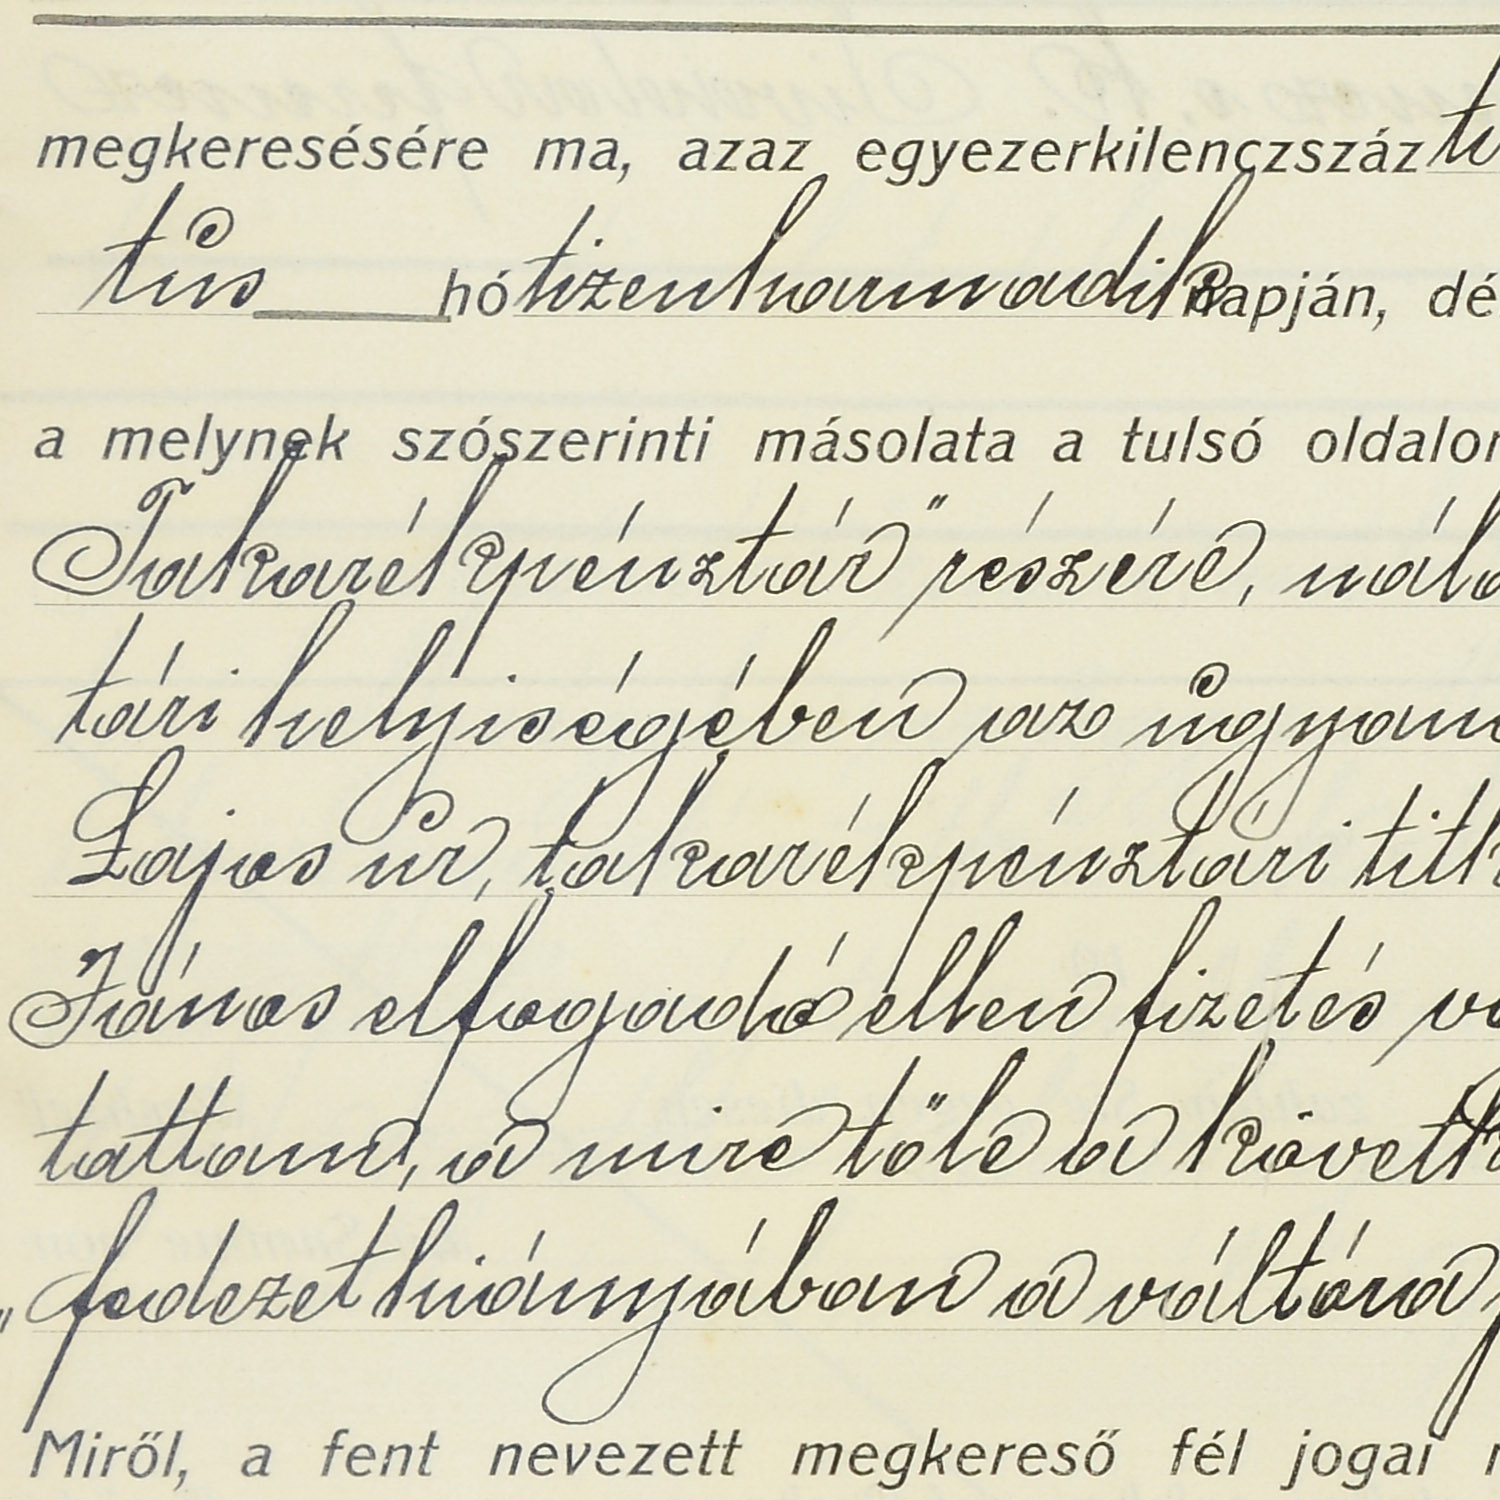 megkeresésére ma, azaz egyezerkilenczszáz
tus hó tizenharmadik napján, dé
a melynek szószerinti másolata a tulsó oldalon
Takarékpénztár" részére, nála
tári helyiségében az ugyan
Lajos úr, takarékpénztári titk
János elfogadó ellen fizetés v
tattam, a mire tőle a követk
„fedezet hiányában a váltóra
Miről, a fent nevezett megkereső fél jogai